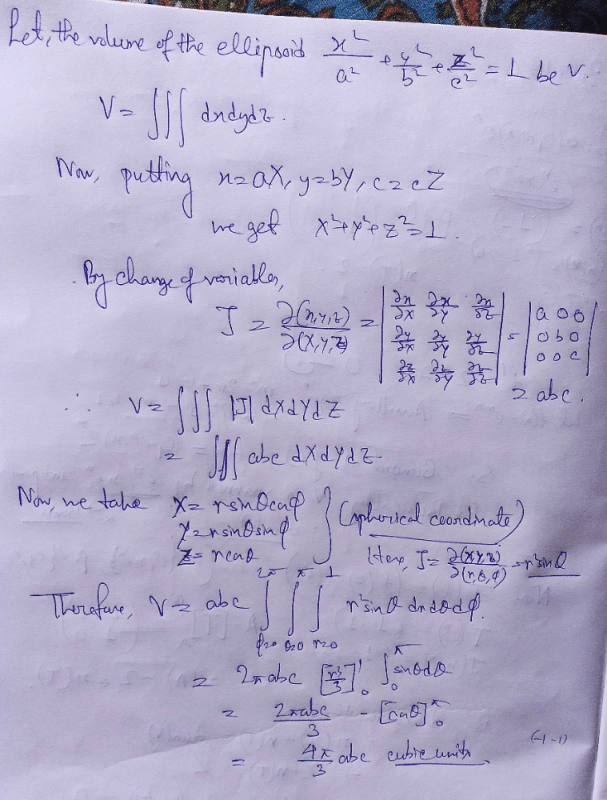 Let, the volume of the ellipsoid x²/a² + y²/b² + z²/c² = 1 be V.
V = ∭ dxdydz.
Now, putting x = aX, y = bY, c = cZ
we get X² + Y² + Z² = 1.
By change of variables,
J = ∂(x,y,z)/∂(X,Y,Z) = |∂x/∂X ∂x/∂Y ∂x/∂Z; ∂y/∂X ∂y/∂Y ∂y/∂Z; ∂z/∂X ∂z/∂Y ∂z/∂Z| = |a 0 0; 0 b 0; 0 0 c|
= abc.
∴ V = ∭ |J| dXdYdZ
= ∭ abc dXdYdZ.
Now, we take X = r sinθ cosφ
Y = r sinθ sinφ } (spherical coordinate)
Z = r cosθ Here, J = ∂(X,Y,Z)/∂(r,θ,φ) = r² sinθ
Therefore, V = abc ∫_{φ=0}^{2π} ∫_{θ=0}^{π} ∫_{r=0}^{1} r² sinθ dr dθ dφ.
= 2π abc [r³/3]₀¹ ∫₀^π sinθ dθ
= 2πabc/3 - [cosθ]₀^π
(-1-1)
= 4π/3 abc cubic units.